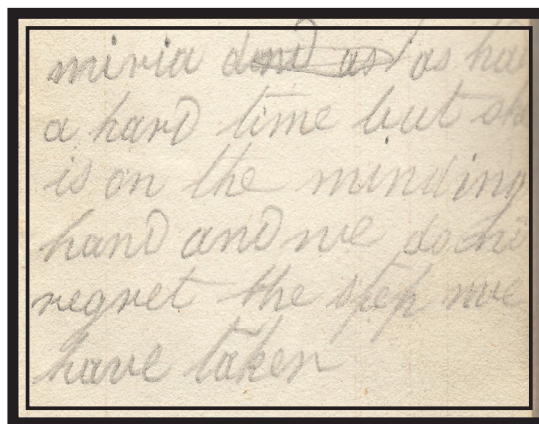 miria as has
a hard time but she
is on the minding
hand and we dont
regret the step we
have taken